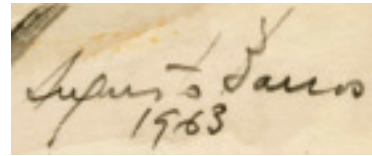 Augusto Barros
1963